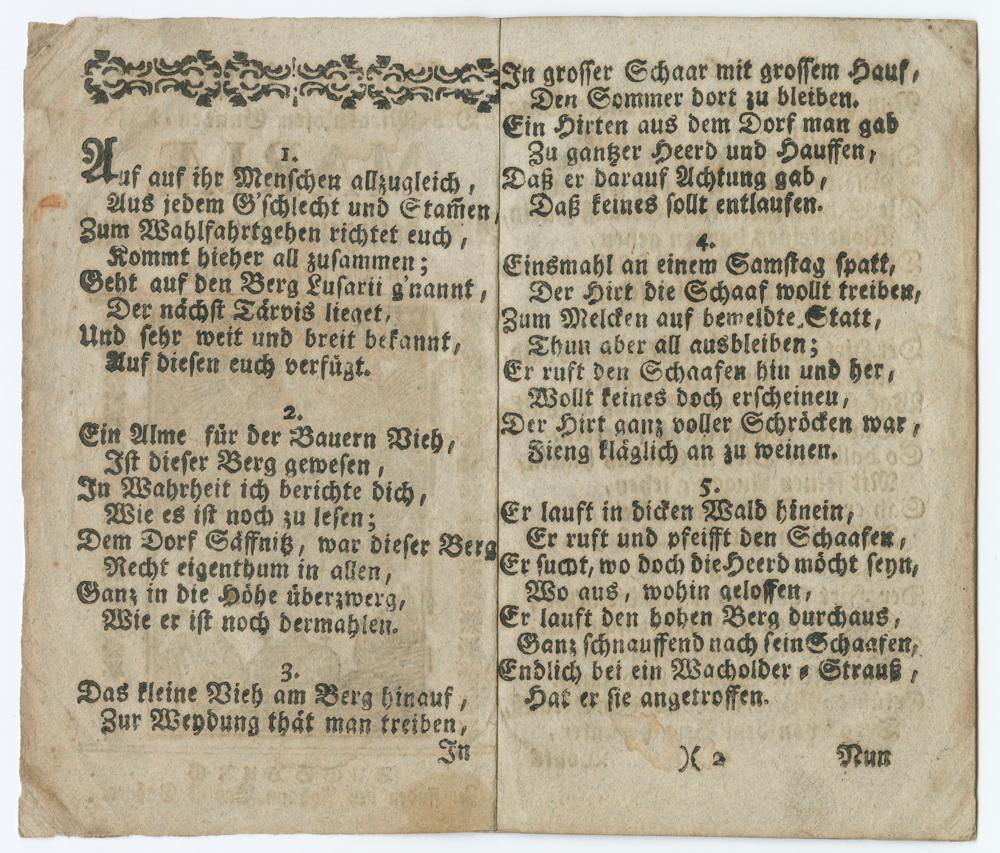 1.
Auf auf ihr Menschen allzugleich,
Aus jedem G'schlecht und Stam̃en,
Zum Wahlfahrtgehen richtet euch,
Kommt hieher all zusammen;
Geht auf den Berg Lusarii g'nannt,
Der nächst Tärvis lieget,
Und sehr weit und breit bekannt,
Auf diesen euch verfügt.
2.
Ein Alme für der Bauern Vieh,
Ist dieser Berg gewesen,
In Wahrheit ich berichte dich,
Wie es ist noch zu lesen;
Dem Dorf Säffnitz, war dieser Berg
Recht eigenthum in allen,
Ganz in die Höhe überzwerg,
Wie er ist noch dermahlen.
3.
Das kleine Vieh am Berg hinauf,
Zur Weydung thät man treiben,
In
In grosser Schaar mit grossem Hauf,
Den Sommer dort zu bleiben.
Ein Hirten aus dem Dorf man gab
Zu gantzer Heerd und Hauffen,
Daß er darauf Achtung gab,
Daß keines sollt entlaufen.
4.
Einsmahl an einem Samstag spatt,
Der Hirt die Schaaf wollt treiben,
Zum Melcken auf bemeldte Statt,
Thun aber all ausbleiben;
Er ruft den Schaafen hin und her,
Wollt keines doch erscheineu,
Der Hirt ganz voller Schröcken war,
Fieng kläglich an zu weinen.
5.
Er lauft in dicken Wald hinein,
Er ruft und pfeifft den Schaafen,
Er sucht, wo doch die Heerd möcht seyn,
Wo aus, wohin geloffen,
Er lauft den hohen Berg durchaus,
Ganz schnauffend nach sein Schaafen,
Endlich bei ein Wacholder-Strauß,
Hat er sie angetroffen.
)( 2 Nun